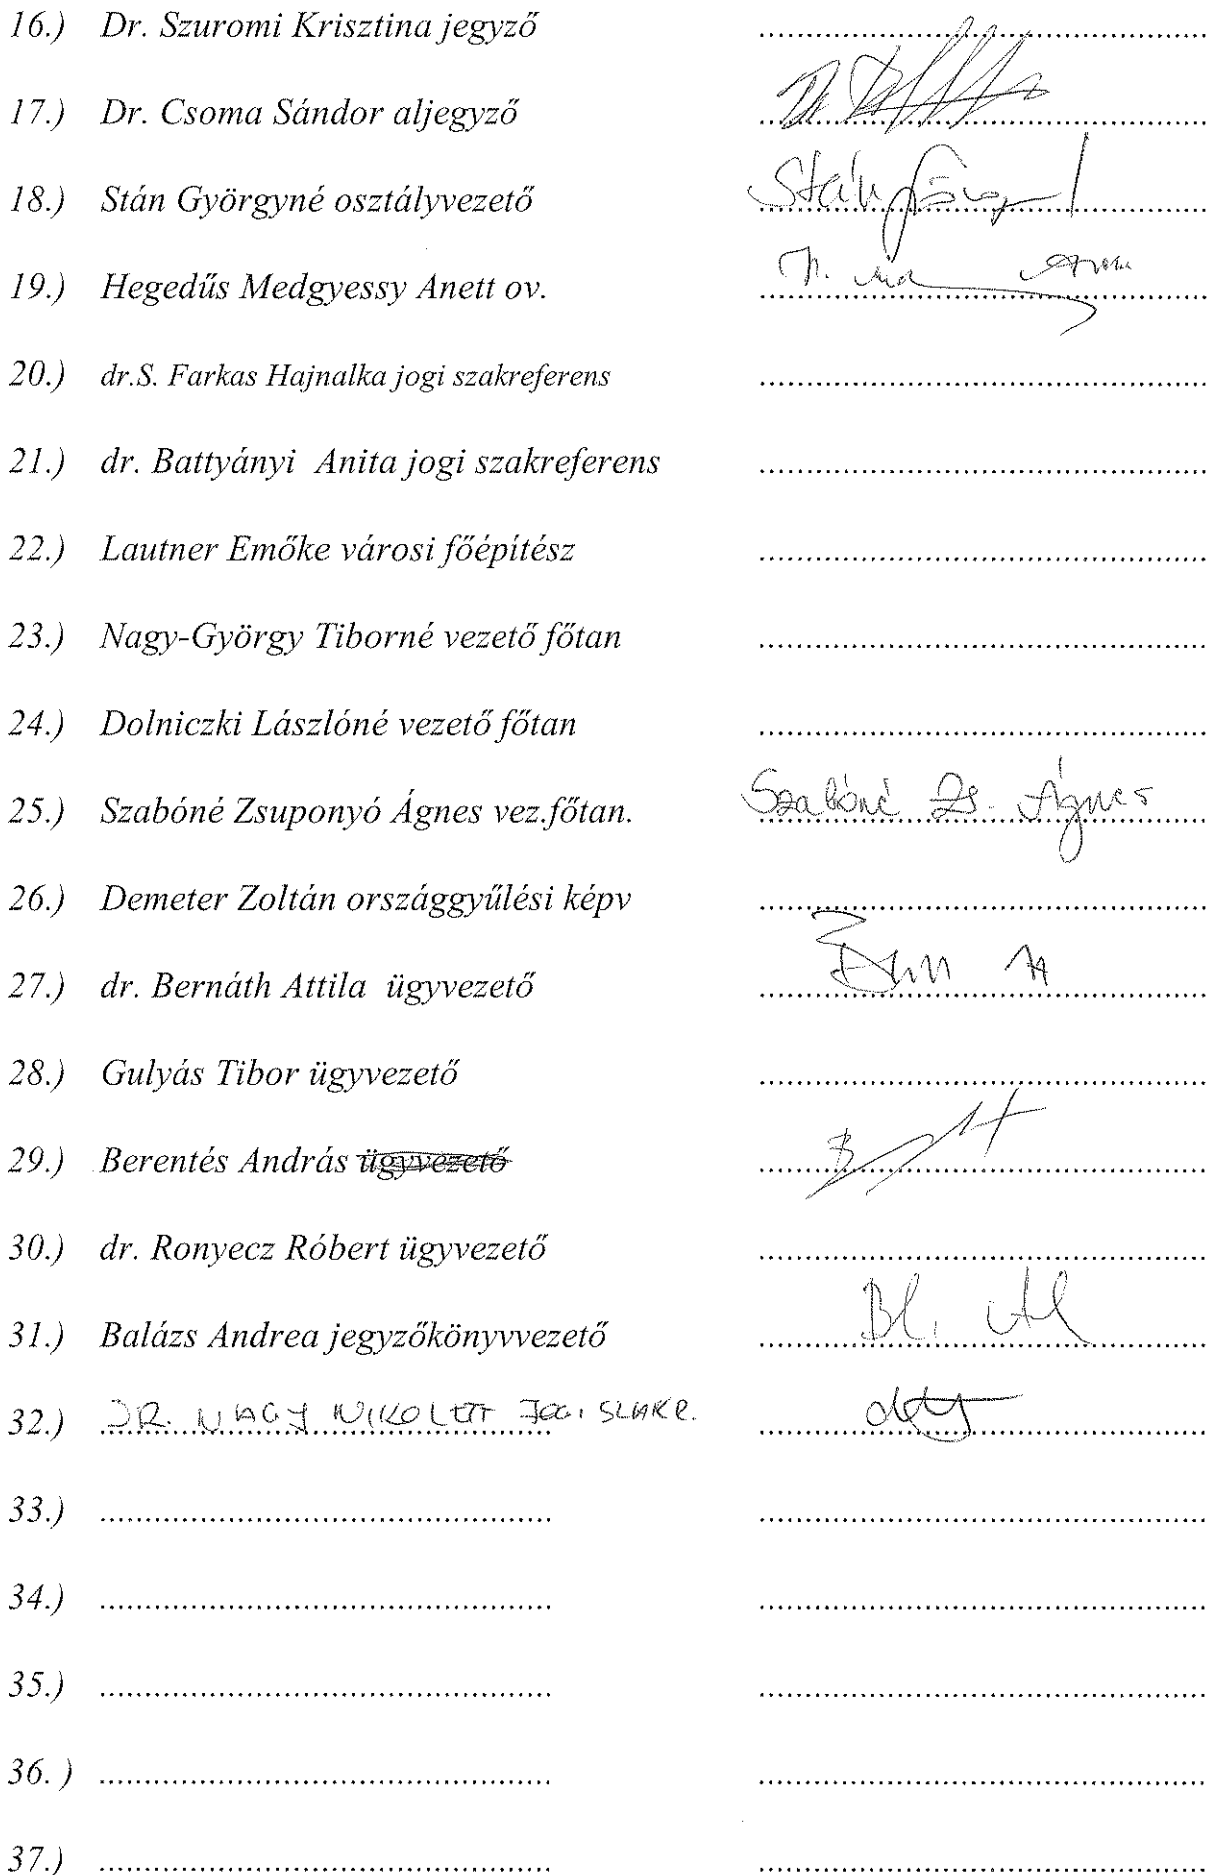 16.) Dr. Szuromi Krisztina jegyző ..................................................
17.) Dr. Csoma Sándor aljegyző ..................................................
18.) Stán Györgyné osztályvezető Stán
19.) Hegedűs Medgyessy Anett ov. ..................................................
20.) dr.S. Farkas Hajnalka jogi szakreferens ..................................................
21.) dr. Battyányi Anita jogi szakreferens ..................................................
22.) Lautner Emőke városi főépítész ..................................................
23.) Nagy-György Tiborné vezető főtan ..................................................
24.) Dolniczki Lászlóné vezető főtan ..................................................
25.) Szabóné Zsuponyó Ágnes vez.főtan. Szabóné Zs. Ágnes
26.) Demeter Zoltán országgyűlési képv ..................................................
27.) dr. Bernáth Attila ügyvezető ..................................................
28.) Gulyás Tibor ügyvezető ..................................................
29.) Berentés András ügyvezető ..................................................
30.) dr. Ronyecz Róbert ügyvezető ..................................................
31.) Balázs Andrea jegyzőkönyvvezető ..................................................
32.) DR. NAGY NIKOLETT JOGI SZAKR. ..................................................
33.) .................................................. ..................................................
34.) .................................................. ..................................................
35.) .................................................. ..................................................
36. ) .................................................. ..................................................
37.) .................................................. ..................................................